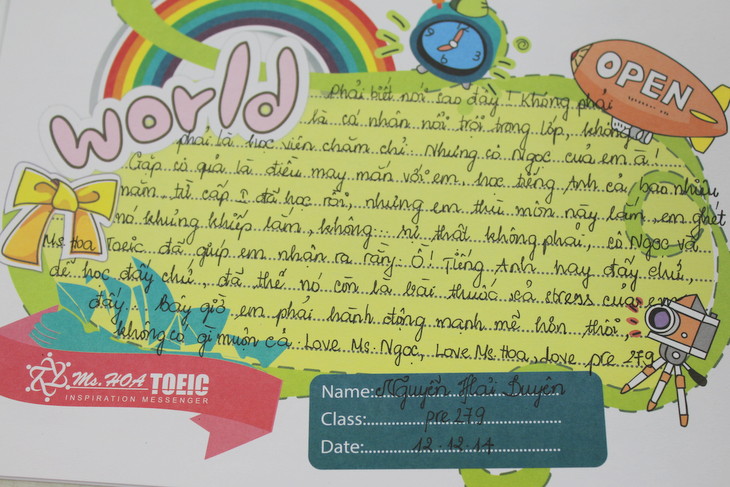 world
OPEN
Phải biết nói sao đây! Không phải
là cá nhân nổi trội trong lớp, không
phải là học viên chăm chỉ. Nhưng cô Ngọc của em à!
Gặp cô quả là điều may mắn với em, học tiếng Anh cả bao nhiêu
năm, từ cấp I đã học rồi, nhưng em thù môn này lắm, em ghét
nó khủng khiếp lắm, không... sự thật không phải, cô Ngọc và
Ms Hoa Toeic đã giúp em nhận ra rằng: Ồ! Tiếng Anh hay đấy chứ,
dễ học đấy chứ, đã thế nó còn là bài thuốc xả stress của em
đấy... Bây giờ em phải hành động mạnh mẽ hơn thôi,
không có gì muộn cả. Love Ms. Ngọc, Love Ms. Hoa, love pre 279
Ms. HOA TOEIC
INSPIRATION MESSENGER
Name: Nguyễn Hải Duyên
Class: pre 279
Date: 12.12.14